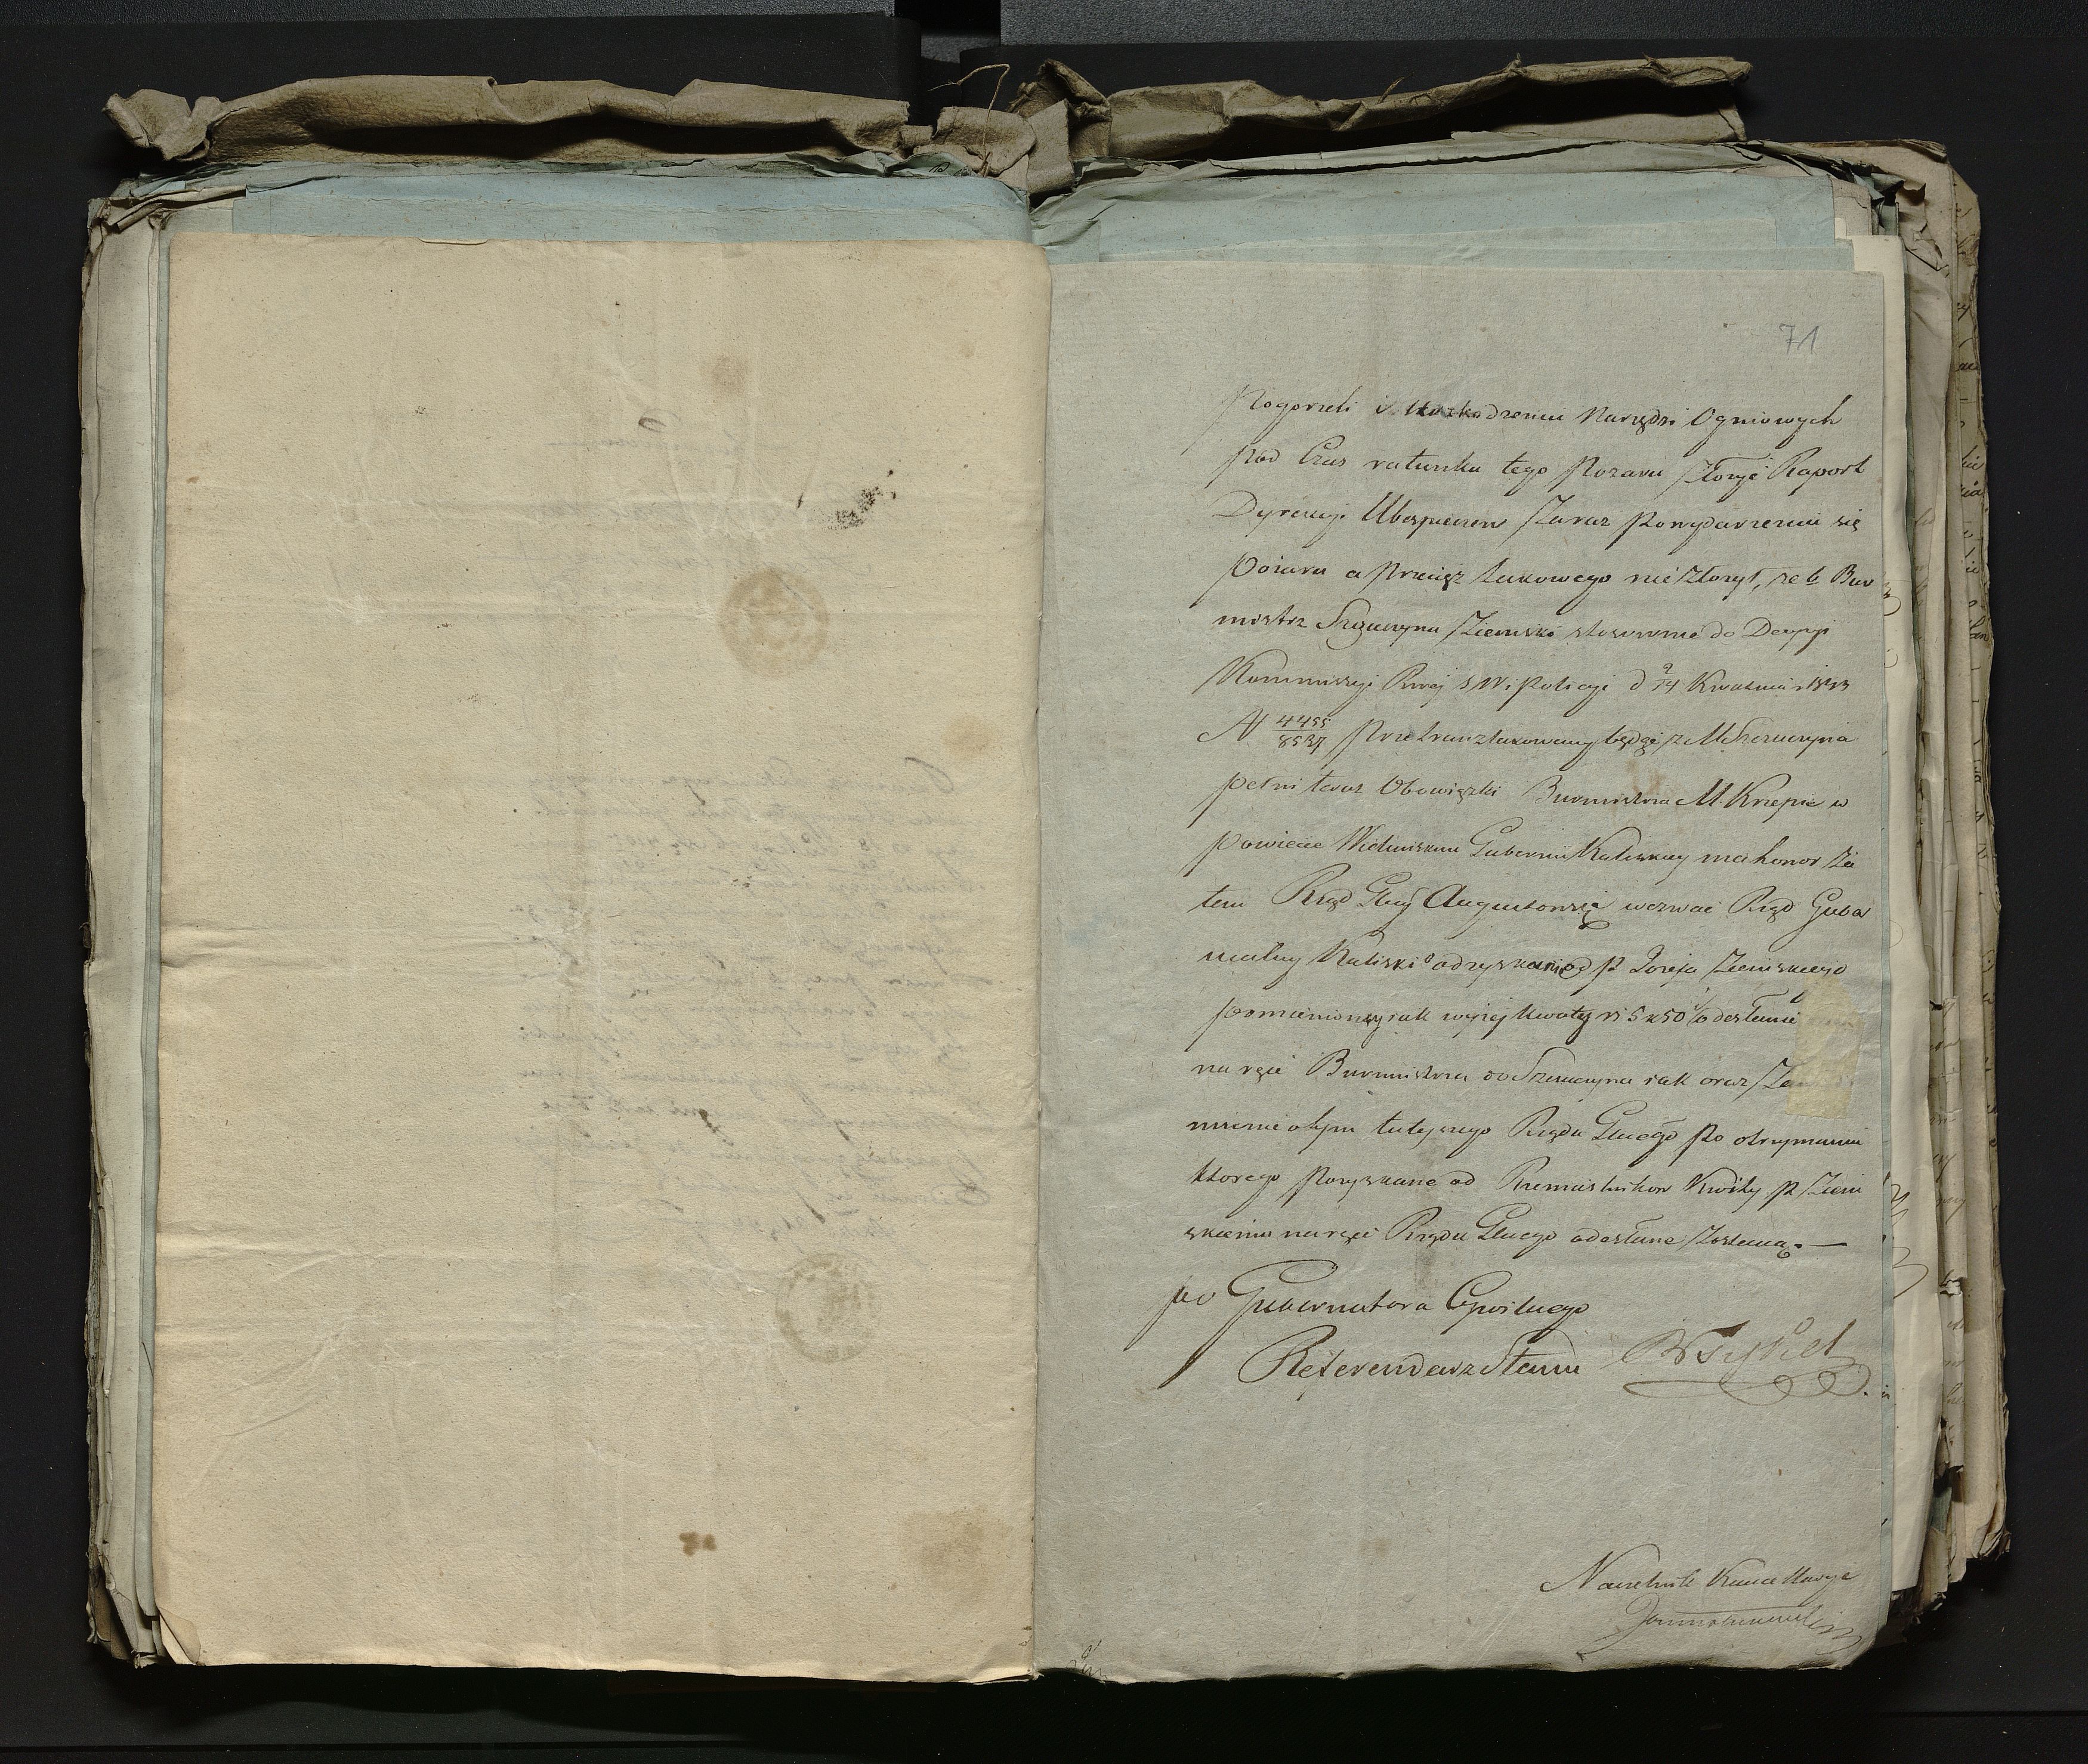 71
pogorzeli i uszkodzeniu Narzędzi Ogniowych
pod Czas ratunku tego pożaru złożyć Raport
Dyrekcyi Ubespieczen zaraz po wydarzeniu się
pożaru a przecież takowego nie złożył, że b. Bur
mistrz Szczuczyna Ziemski stosownie do Decyzyi
Kommissyi Rwej S W i Policyi d 2/14 Kwietnia
N 4455/8537 przetranzlokowany będąc z M Szczuczyna
pełni teraz Obowiązki Burmistrza M. Krzepic w
powiecie Wieluńskim Gubernii Kaliskiey ma honor za
tem Rząd Glny Augustowski wezwać Rząd Guber
nialny Kaliski o odzyskanie od P Józefa Ziemskiego
pomienioney jak wyżej kwoty rs 5 k 50 i odesłanie
na ręce Burmistrza do Szczuczyna jak oraz
mienie o tym tutejszego Rządu Glnego po otrzymaniu
ktorego pozyskane od Rzemieslnikow Kwity P Ziem
skiemu na ręce Rządu Glnego odesłane zostaną. —
po Gubernatora Cywilnego
Referendarz Stanu
Naczelnik Kancellaryi